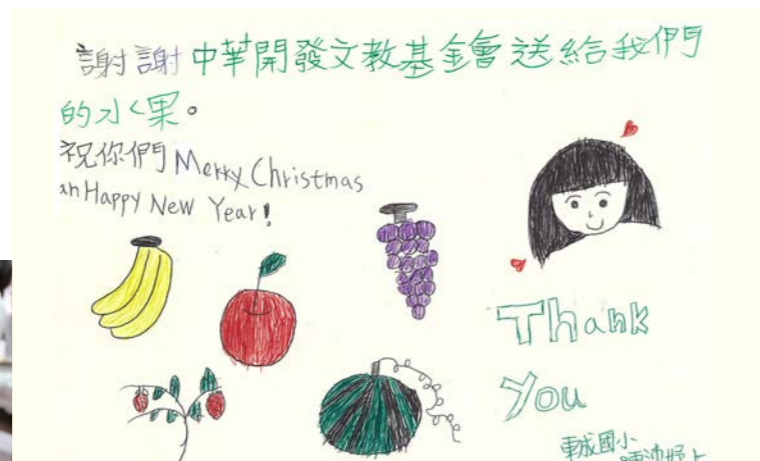 謝謝中華開發文教基金會送給我們
的水果。
祝你們Merry Christmas
an Happy New Year!
Thank
You
東成國小